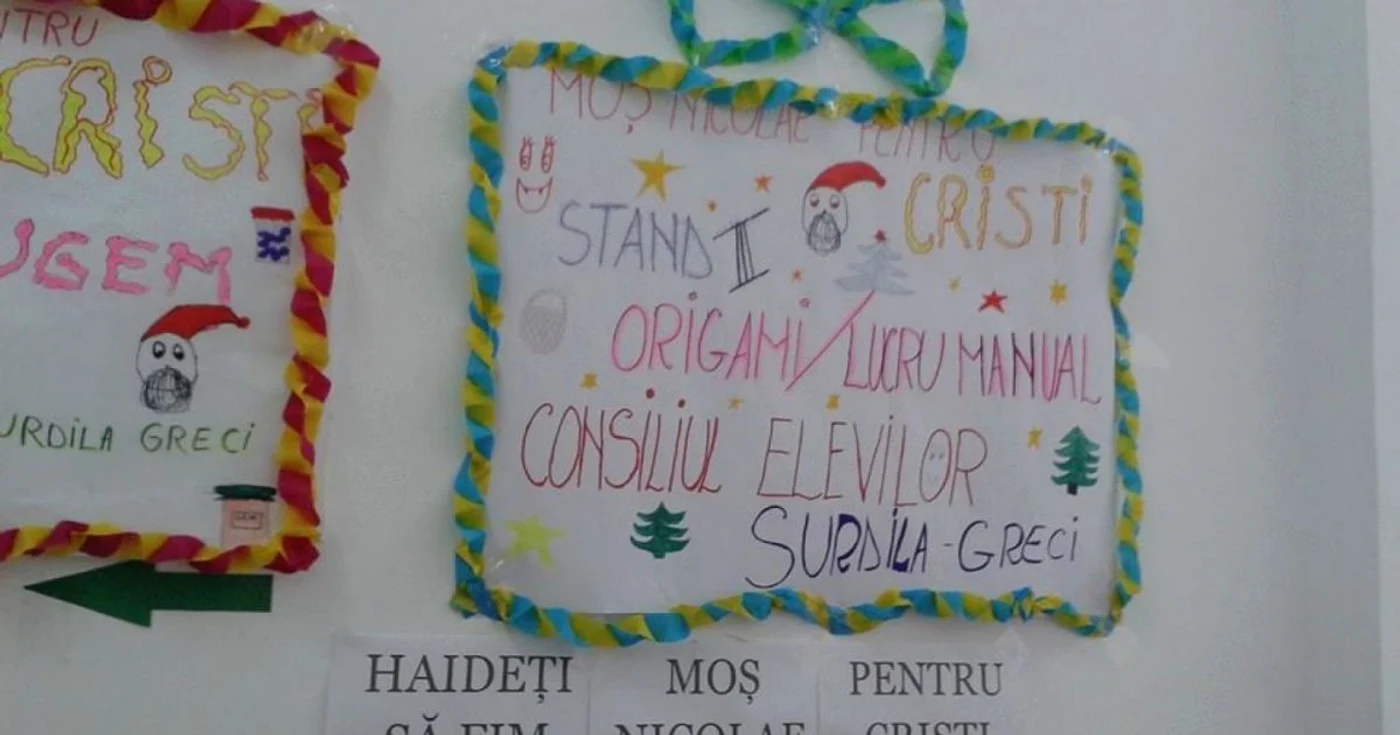 NTRU
CRiSTi
UGEM
URDiLA GRECi
GEM
MOȘ NICOLAE PENTRU
CRiSTi
STAND II
ORiGAMi/LUCRU MANUAL
CONSiLiUL ELEViLOR
SURDiLA-GRECi
HAIDEȚI MOȘ PENTRU
SĂ FIM NICOLAE CRISTI